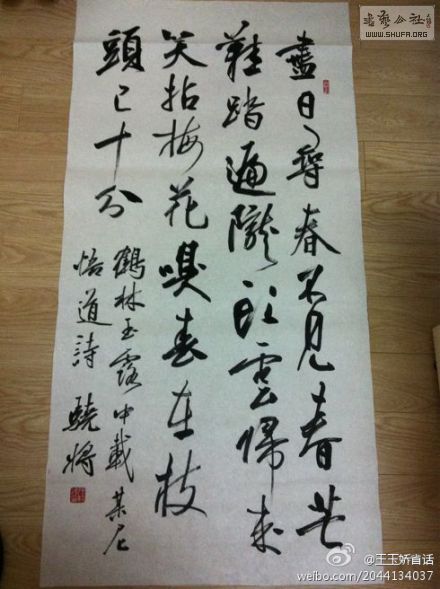 盡日尋春不見春芒
鞋踏遍隴頭雲歸來
笑拈梅花嗅春在枝
頭已十分
鶴林玉露中載某尼
悟道詩 驍將
書藝公社
WWW.SHUFA.ORG
@王玉娇肯话
weibo.com/2044134037